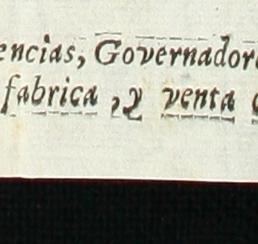 encias, Governador
fabrica , y venta